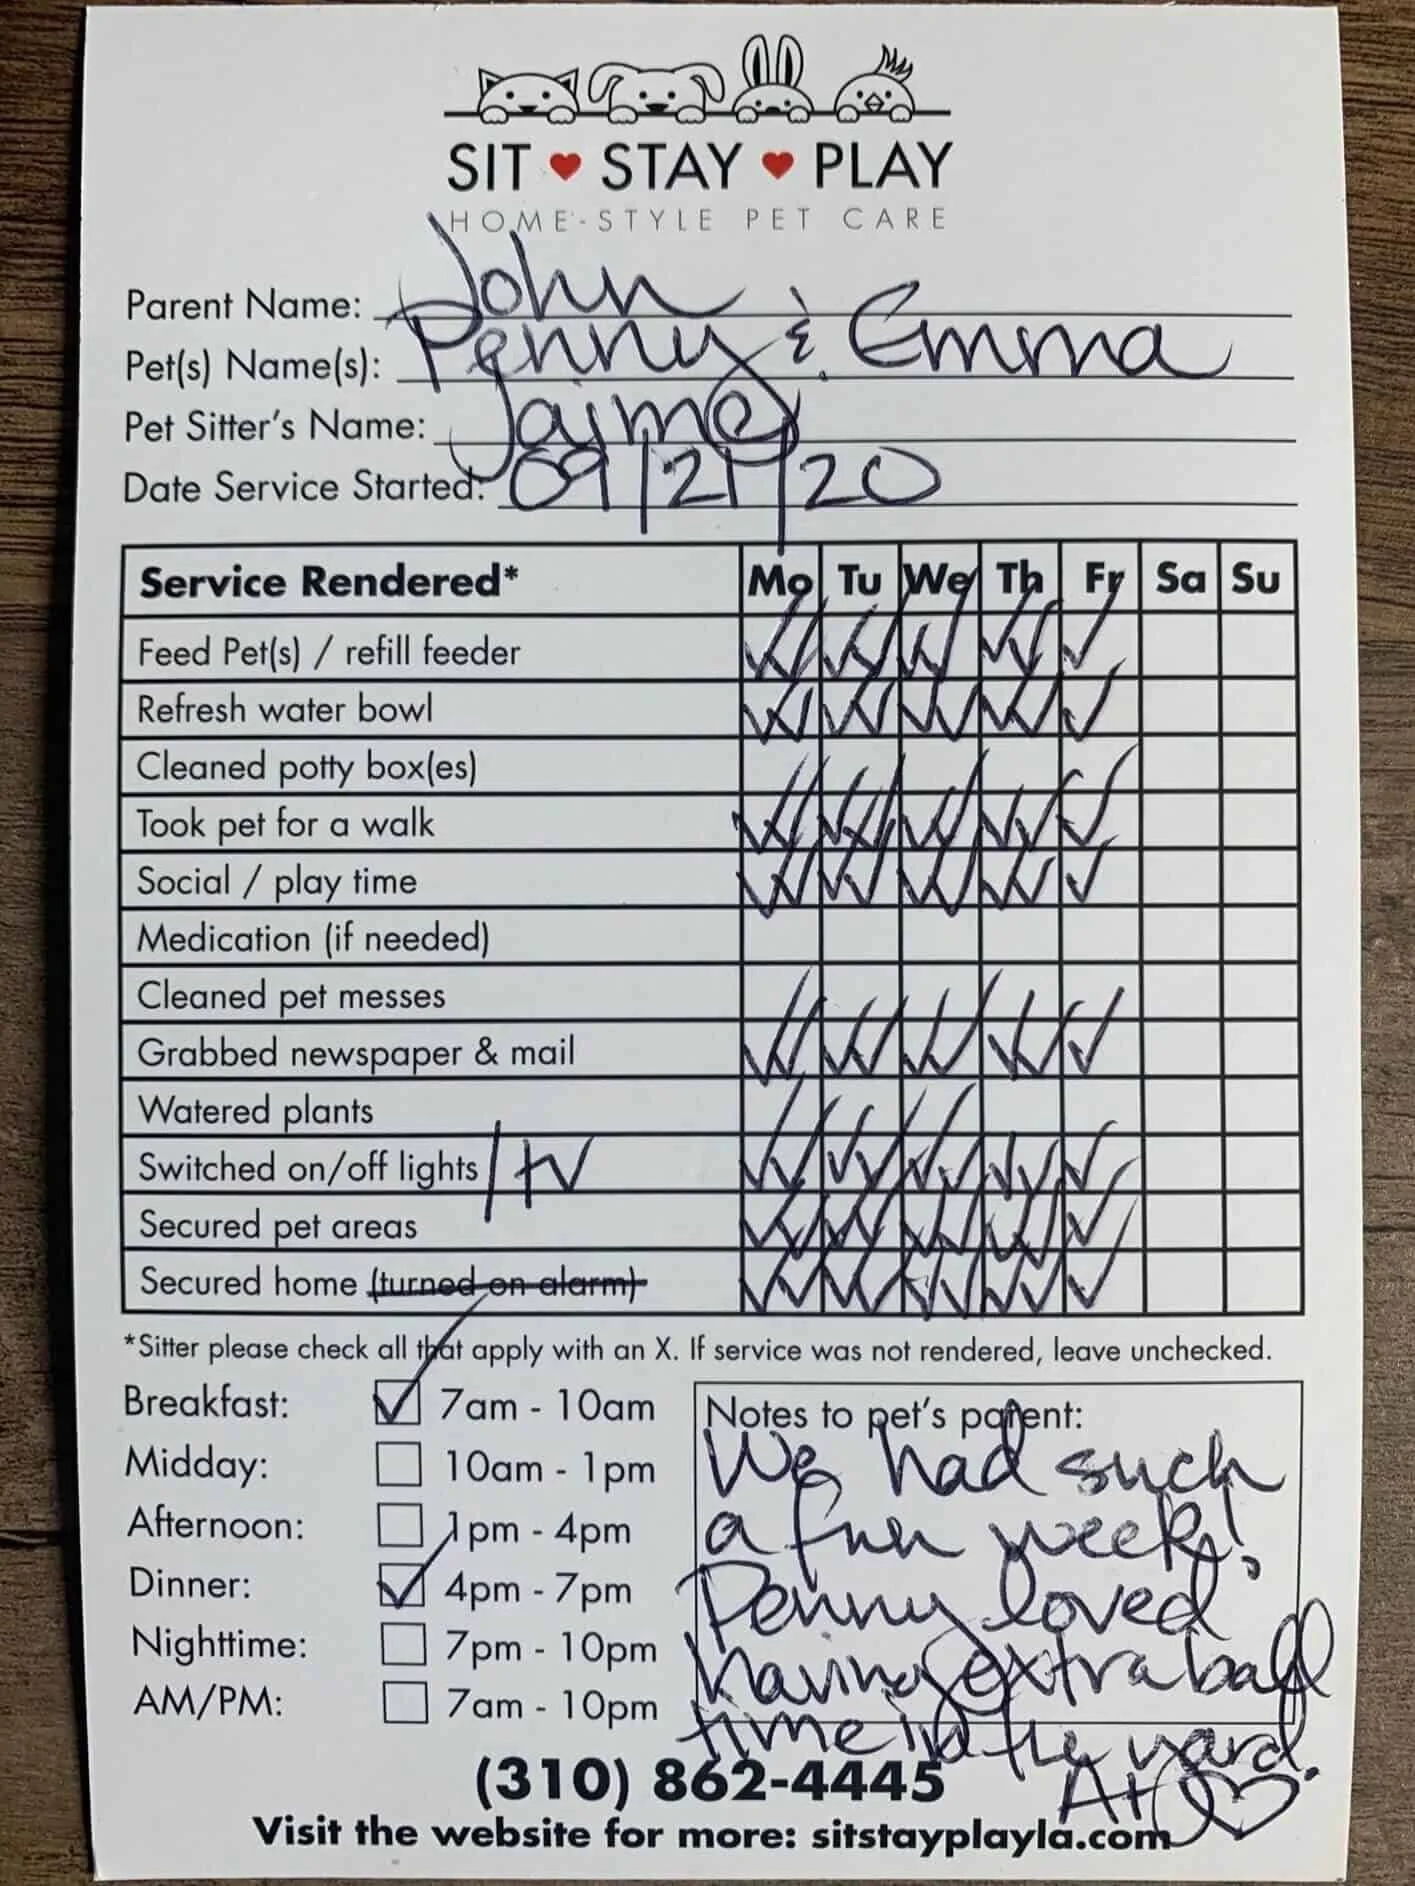 SIT ♥ STAY ♥ PLAY
HOME-STYLE PET CARE
Parent Name: John
Pet(s) Name(s): Penny & Emma
Pet Sitter's Name: Jayme
Date Service Started: 09/21/20
Service Rendered* Mo Tu We Th Fr Sa Su
Feed Pet(s) / refill feeder ✓✓ ✓✓ ✓✓ ✓✓ ✓
Refresh water bowl ✓✓ ✓✓ ✓✓ ✓✓ ✓
Cleaned potty box(es)
Took pet for a walk ✓✓ ✓✓ ✓✓ ✓✓ ✓
Social / play time ✓✓ ✓✓ ✓✓ ✓✓ ✓
Medication (if needed)
Cleaned pet messes
Grabbed newspaper & mail ✓✓ ✓✓ ✓✓ ✓✓ ✓
Watered plants
Switched on/off lights / tv ✓✓ ✓✓ ✓✓ ✓✓ ✓
Secured pet areas ✓✓ ✓✓ ✓✓ ✓✓ ✓
Secured home (turned on alarm) ✓✓ ✓✓ ✓✓ ✓✓ ✓
*Sitter please check all that apply with an X. If service was not rendered, leave unchecked.
Breakfast: ✓ 7am - 10am
Midday: 10am - 1pm
Afternoon: 1pm - 4pm
Dinner: ✓ 4pm - 7pm
Nighttime: 7pm - 10pm
AM/PM: 7am - 10pm
Notes to pet's parent:
We had such
a fun week!
Penny loved
having extra ball
time in the yard.
(310) 862-4445
Visit the website for more: sitstayplayla.com